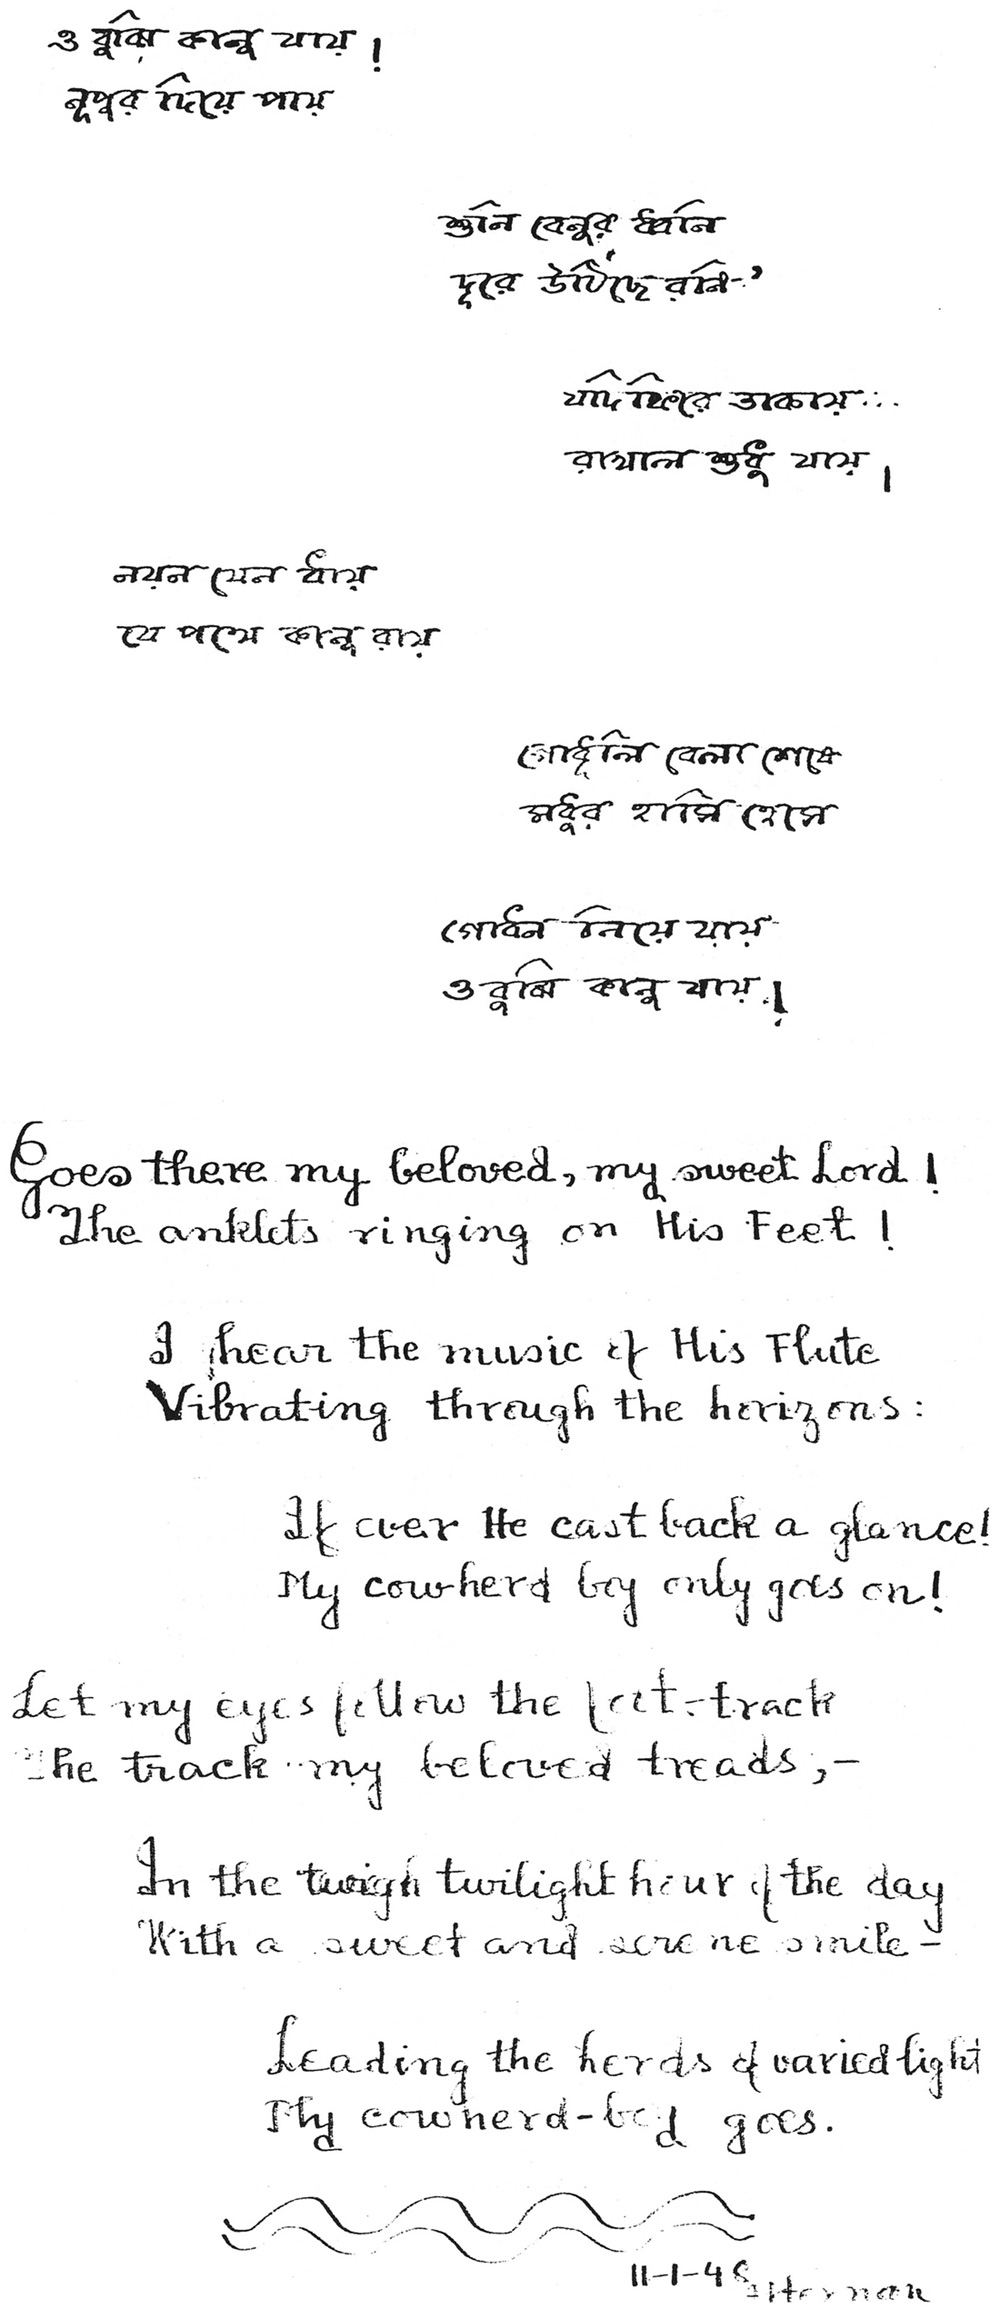 ও বুঝি কানু যায় !
নূপুর দিয়ে পায়
শুনি বেনুর ধ্বনি
দূরে উঠিছে রনি-’
যদি ফিরে তাকায় ...
রাখাল শুধু যায় ।
নয়ন যেন ধায়
যে পথে কানু রায়
গোধূলি বেলা শেষে
মধুর হাসি হেসে
গোধন নিয়ে যায়
ও বুঝি কানু যায় !
Goes there my beloved, my sweet Lord !
The anklets ringing on His Feet !
I hear the music of His Flute
Vibrating through the horizons :
If ever He cast back a glance!
My cowherd boy only goes on!
Let my eyes follow the feet-track
The track my beloved treads, -
In the twigh twilight hour of the day
With a sweet and serene smile -
Leading the herds of varied light
My cowherd-boy goes.
11-1-48